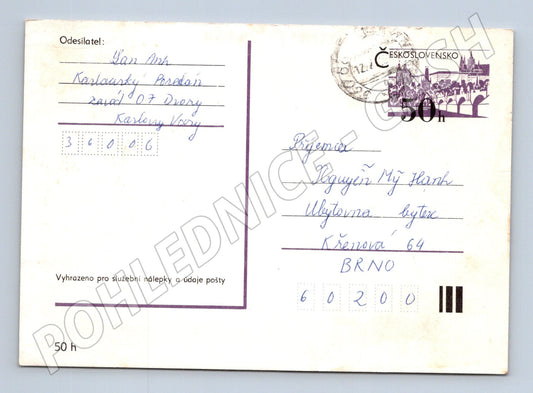 Odesílatel:
Karlovarský Porcelán
závod 07 Dvory
Karlovy Vary
36006
Vyhrazeno pro služební nálepky a údaje pošty
50 h
ČESKOSLOVENSKO
50h
Příjemce
Nguyěň Mỹ Hạnh
Ubytovna bytex
Křenová 64
BRNO
60200
POHLEDNICE - CASH